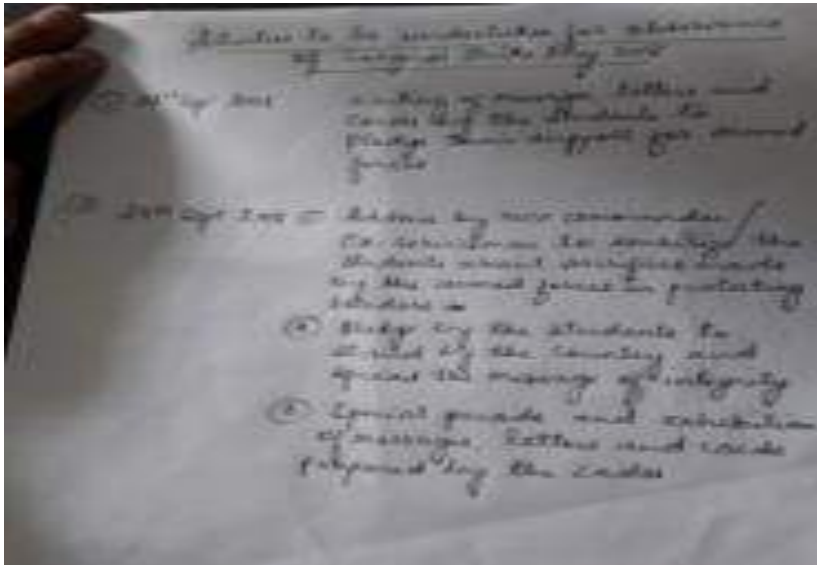 Activities to be undertaken for observance
of Surgical Strike Day
① writing of message, letters and
cards by the students to
pledge their support for armed
forces
② 29th by NCC commander /
Ex-serviceman to sensitize the
students about sacrifices made
by the armed forces in protecting
borders
pledge by the students to
stand by the country and
spread the message of integrity
Special parade and exhibition
of messages, letters and cards
prepared by the cadets